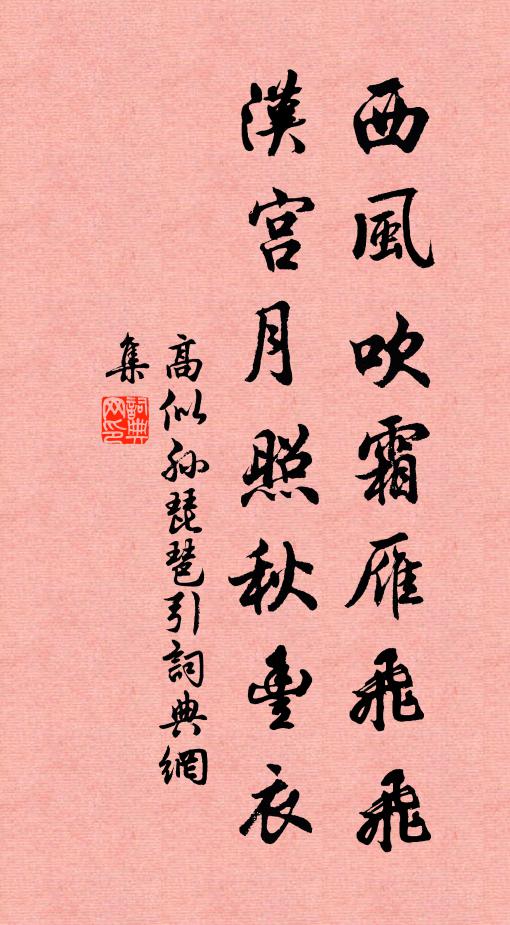 西風吹霜雁飛飛
漢宮月照秋衣
高似孙琵琶引詞典網
集
詞典
网印